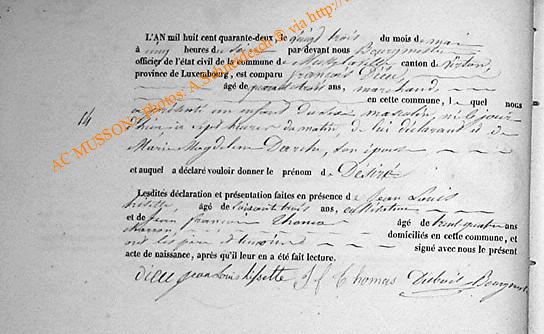 L'AN mil huit cent quarante-deux, le vingt trois du mois de mai
à cinq heures du soir par devant nous Bourgmestre
officier de l'état civil de la commune de Mussy-la-ville canton de Virton,
province de Luxembourg, est comparu françois Dieu
âgé de quarante trois ans, marchand
en cette commune, l quel nous
14 a présenté un enfant du sexe masculin, né le jour
d'hier à sept heures du matin, de lui déclarant et de
Marie Magdeleine son épouse
et auquel a déclaré vouloir donner le prénom de Désiré
Lesdites déclaration et présentation faites en présence de Jean Louis
âgé de soixante trois ans, cultivateur
et de jean françois Thomas âgé de trente quatre ans
charron, domiciliés en cette commune, et
ont les père et témoins signé avec nous le présent
acte de naissance, après qu'il leur en a été fait lecture.
dieu Jean Louis J f Thomas Bourgmest
AC MUSSON - Photos: A Schneidesch ® via http://